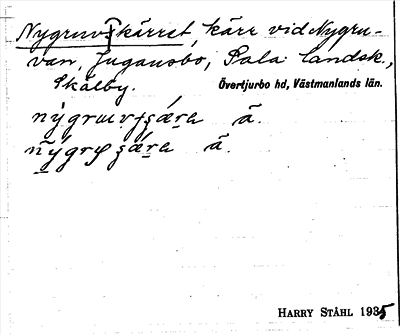 Nygruvskärret, kärr vid Nygru-
van, Jugansbo, Sala landsk.,
Skälby. Övertjurbo hd, Västmanlands län.
ã.
ã.
HARRY STÅHL 1935